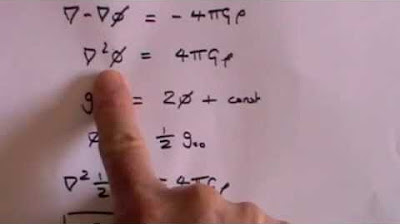 ∇·-∇ϕ = -4πGρ
∇²ϕ = 4πGρ
g = 2ϕ + const
ϕ ½ g₀₀
∇² ½ = 4πGρ